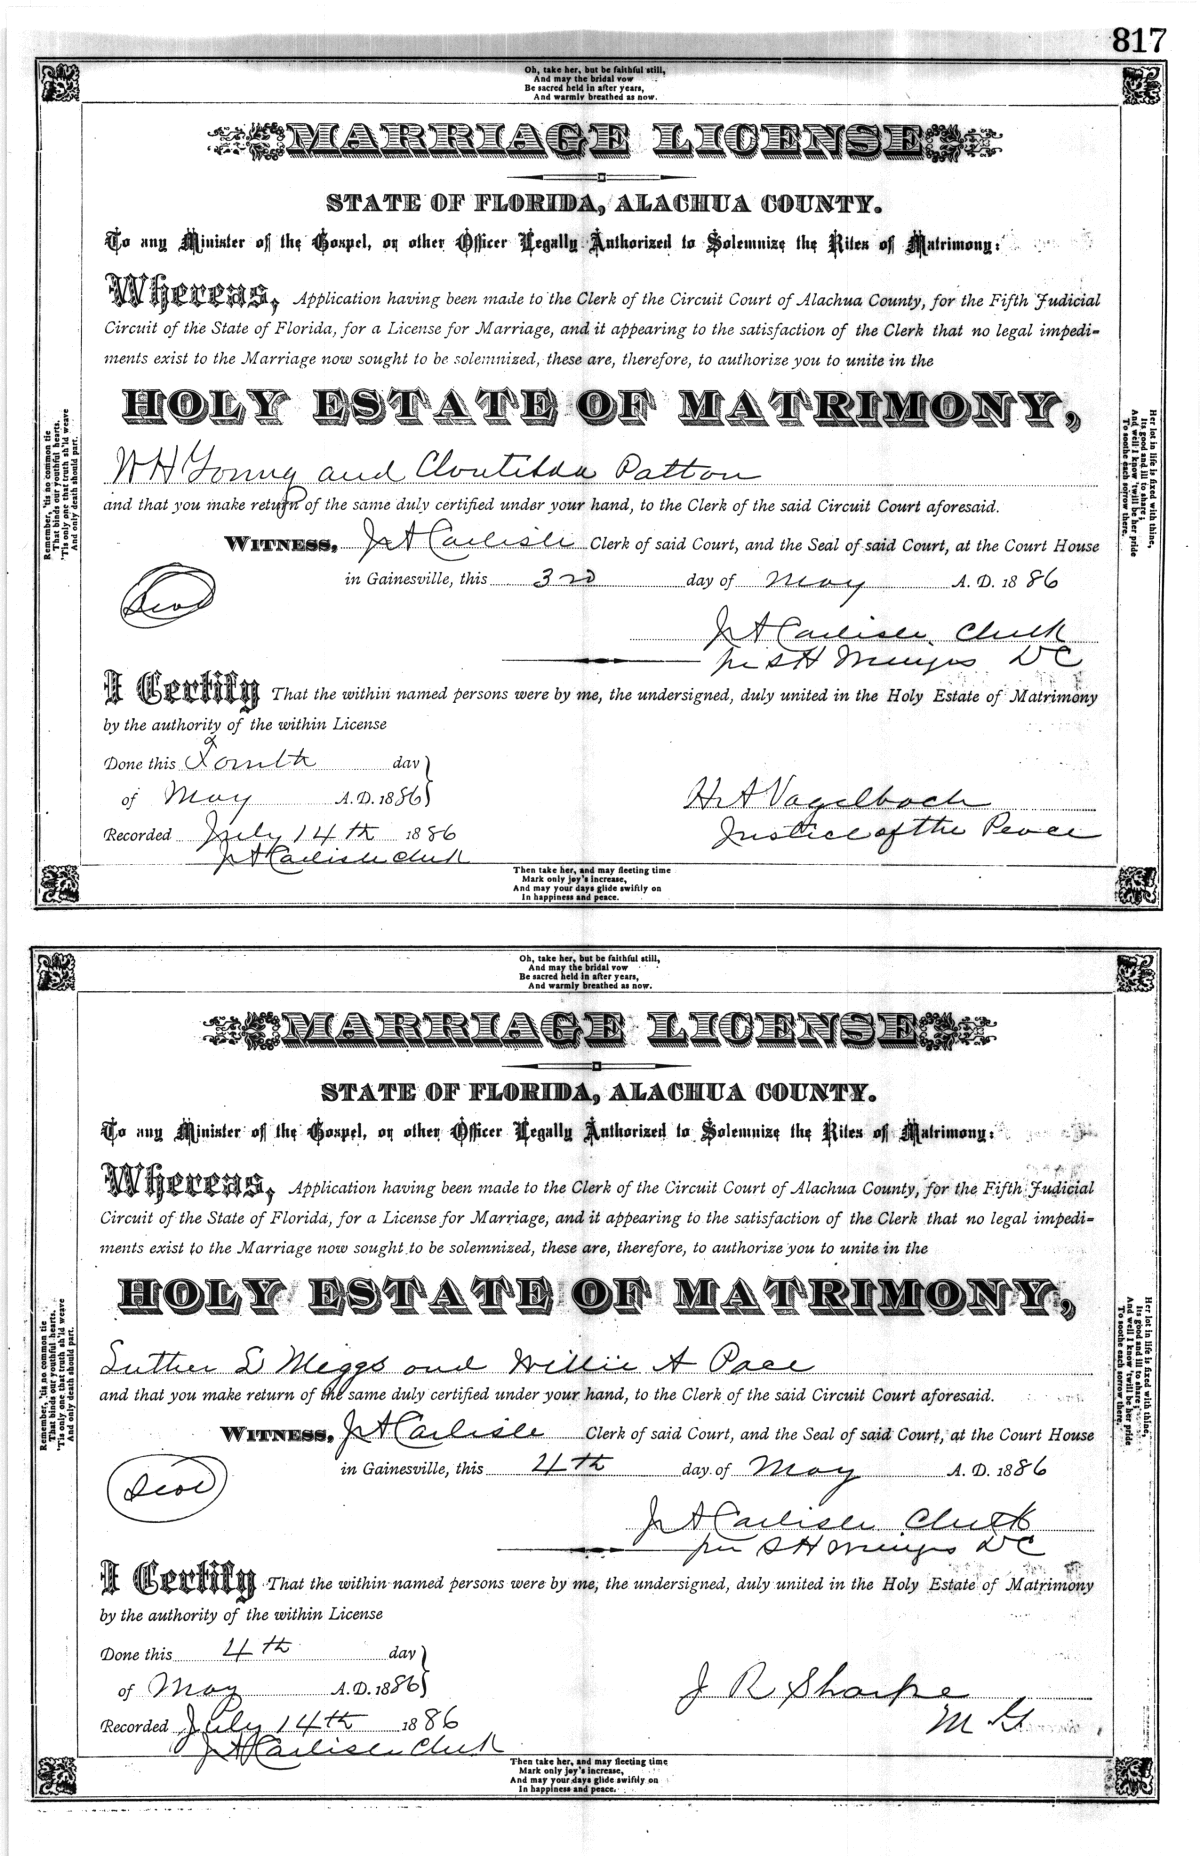 817
Oh, take her, but be faithful still,
And may the bridal vow
Be sacred held in after years,
And warmly breathed as now.
MARRIAGE LICENSE
STATE OF FLORIDA, ALACHUA COUNTY.
To any Minister of the Gospel, or other Officer Legally Authorized to Solemnize the Rites of Matrimony:
Whereas, Application having been made to the Clerk of the Circuit Court of Alachua County, for the Fifth Judicial
Circuit of the State of Florida, for a License for Marriage, and it appearing to the satisfaction of the Clerk that no legal impedi-
ments exist to the Marriage now sought to be solemnized, these are, therefore, to authorize you to unite in the
HOLY ESTATE OF MATRIMONY,
W H Young and Cloutilda Patton
and that you make return of the same duly certified under your hand, to the Clerk of the said Circuit Court aforesaid.
WITNESS, J A Carlisle Clerk of said Court, and the Seal of said Court, at the Court House
in Gainesville, this 3rd day of May A. D. 1886
Seal
J A Carlisle Clerk
per S H DC
I Certify That the within named persons were by me, the undersigned, duly united in the Holy Estate of Matrimony
by the authority of the within License
Done this Fourth day
of May A. D. 1886
H A Vogelbach
Recorded July 14th 1886
Justice of the Peace
J A Carlisle Clerk
Remember, 'tis no common tie
That binds our youthful hearts,
'Tis only one that truth sh'ld weave
And only death should part.
Her lot in life is fixed with thine,
Its good and ill to share;
And well I know 'twill be her pride
To soothe each sorrow there.
Then take her, and may fleeting time
Mark only joy's increase,
And may your days glide swiftly on
In happiness and peace.
Oh, take her, but be faithful still,
And may the bridal vow
Be sacred held in after years,
And warmly breathed as now.
MARRIAGE LICENSE
STATE OF FLORIDA, ALACHUA COUNTY.
To any Minister of the Gospel, or other Officer Legally Authorized to Solemnize the Rites of Matrimony:
Whereas, Application having been made to the Clerk of the Circuit Court of Alachua County, for the Fifth Judicial
Circuit of the State of Florida, for a License for Marriage, and it appearing to the satisfaction of the Clerk that no legal impedi-
ments exist to the Marriage now sought to be solemnized, these are, therefore, to authorize you to unite in the
HOLY ESTATE OF MATRIMONY,
Luther L Meggs and Willie A Pace
and that you make return of the same duly certified under your hand, to the Clerk of the said Circuit Court aforesaid.
WITNESS, J A Carlisle Clerk of said Court, and the Seal of said Court, at the Court House
in Gainesville, this 4th day of May A. D. 1886
Seal
J A Carlisle Clerk
per S H DC
I Certify That the within named persons were by me, the undersigned, duly united in the Holy Estate of Matrimony
by the authority of the within License
Done this 4th day
of May A. D. 1886
J R Sharpe
Recorded July 14th 1886
M G
J A Carlisle Clerk
Remember, 'tis no common tie
That binds our youthful hearts,
'Tis only one that truth sh'ld weave
And only death should part.
Her lot in life is fixed with thine,
Its good and ill to share;
And well I know 'twill be her pride
To soothe each sorrow there.
Then take her, and may fleeting time
Mark only joy's increase,
And may your days glide swiftly on
In happiness and peace.